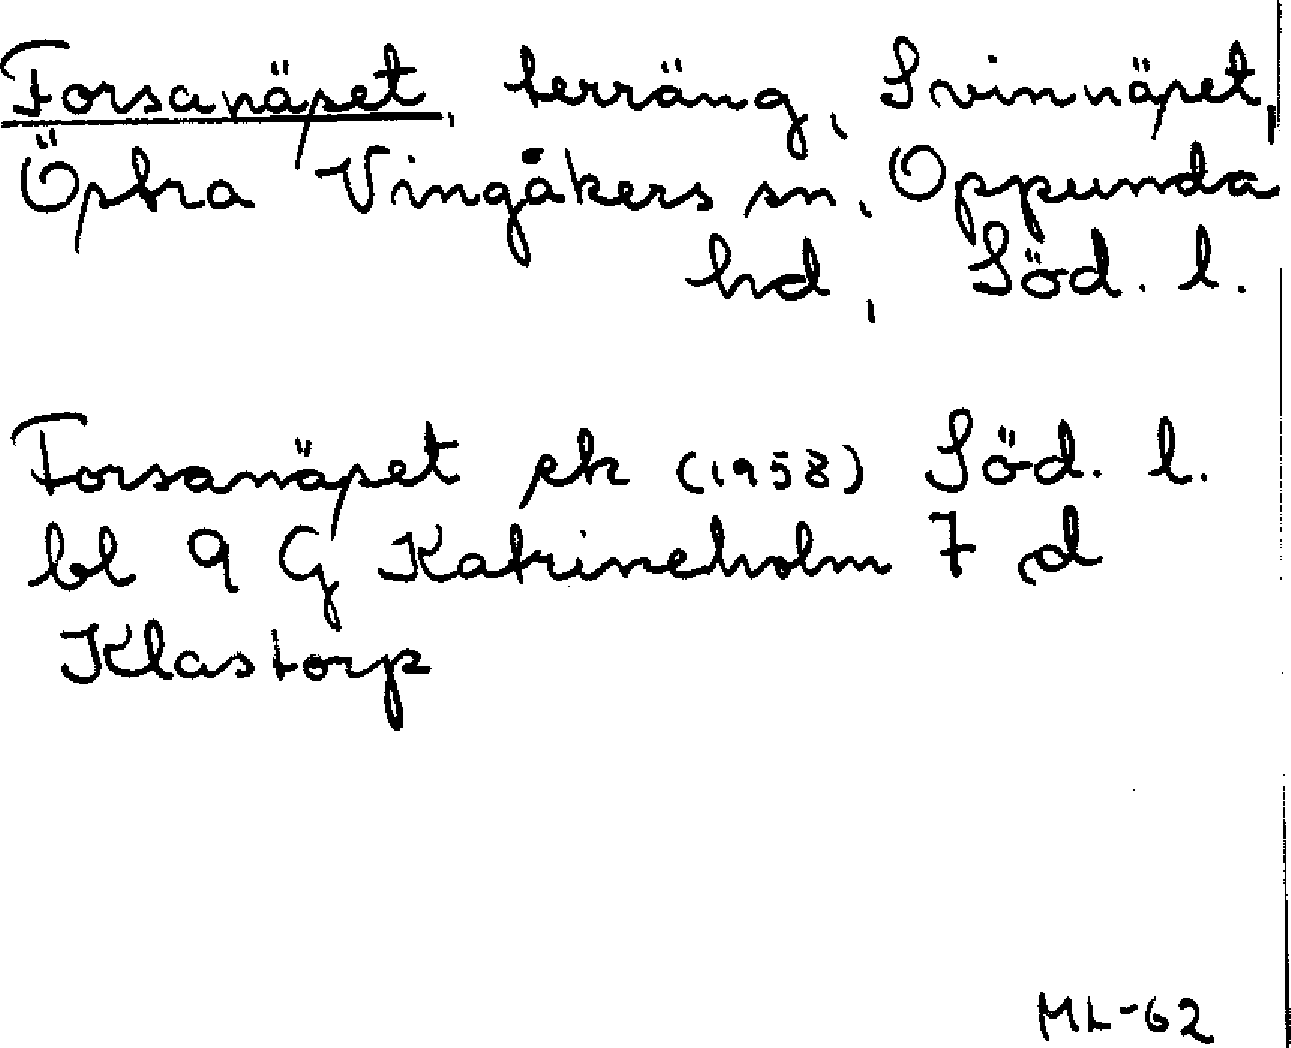 Forsanäset, terräng, Svinnäset,
Östra Vingåkers sn, Oppunda
hd, Söd. l.
Forsanäset ek (1958) Söd. l.
bl 9 G Katrineholm 7 d
Klastorp
ML-62